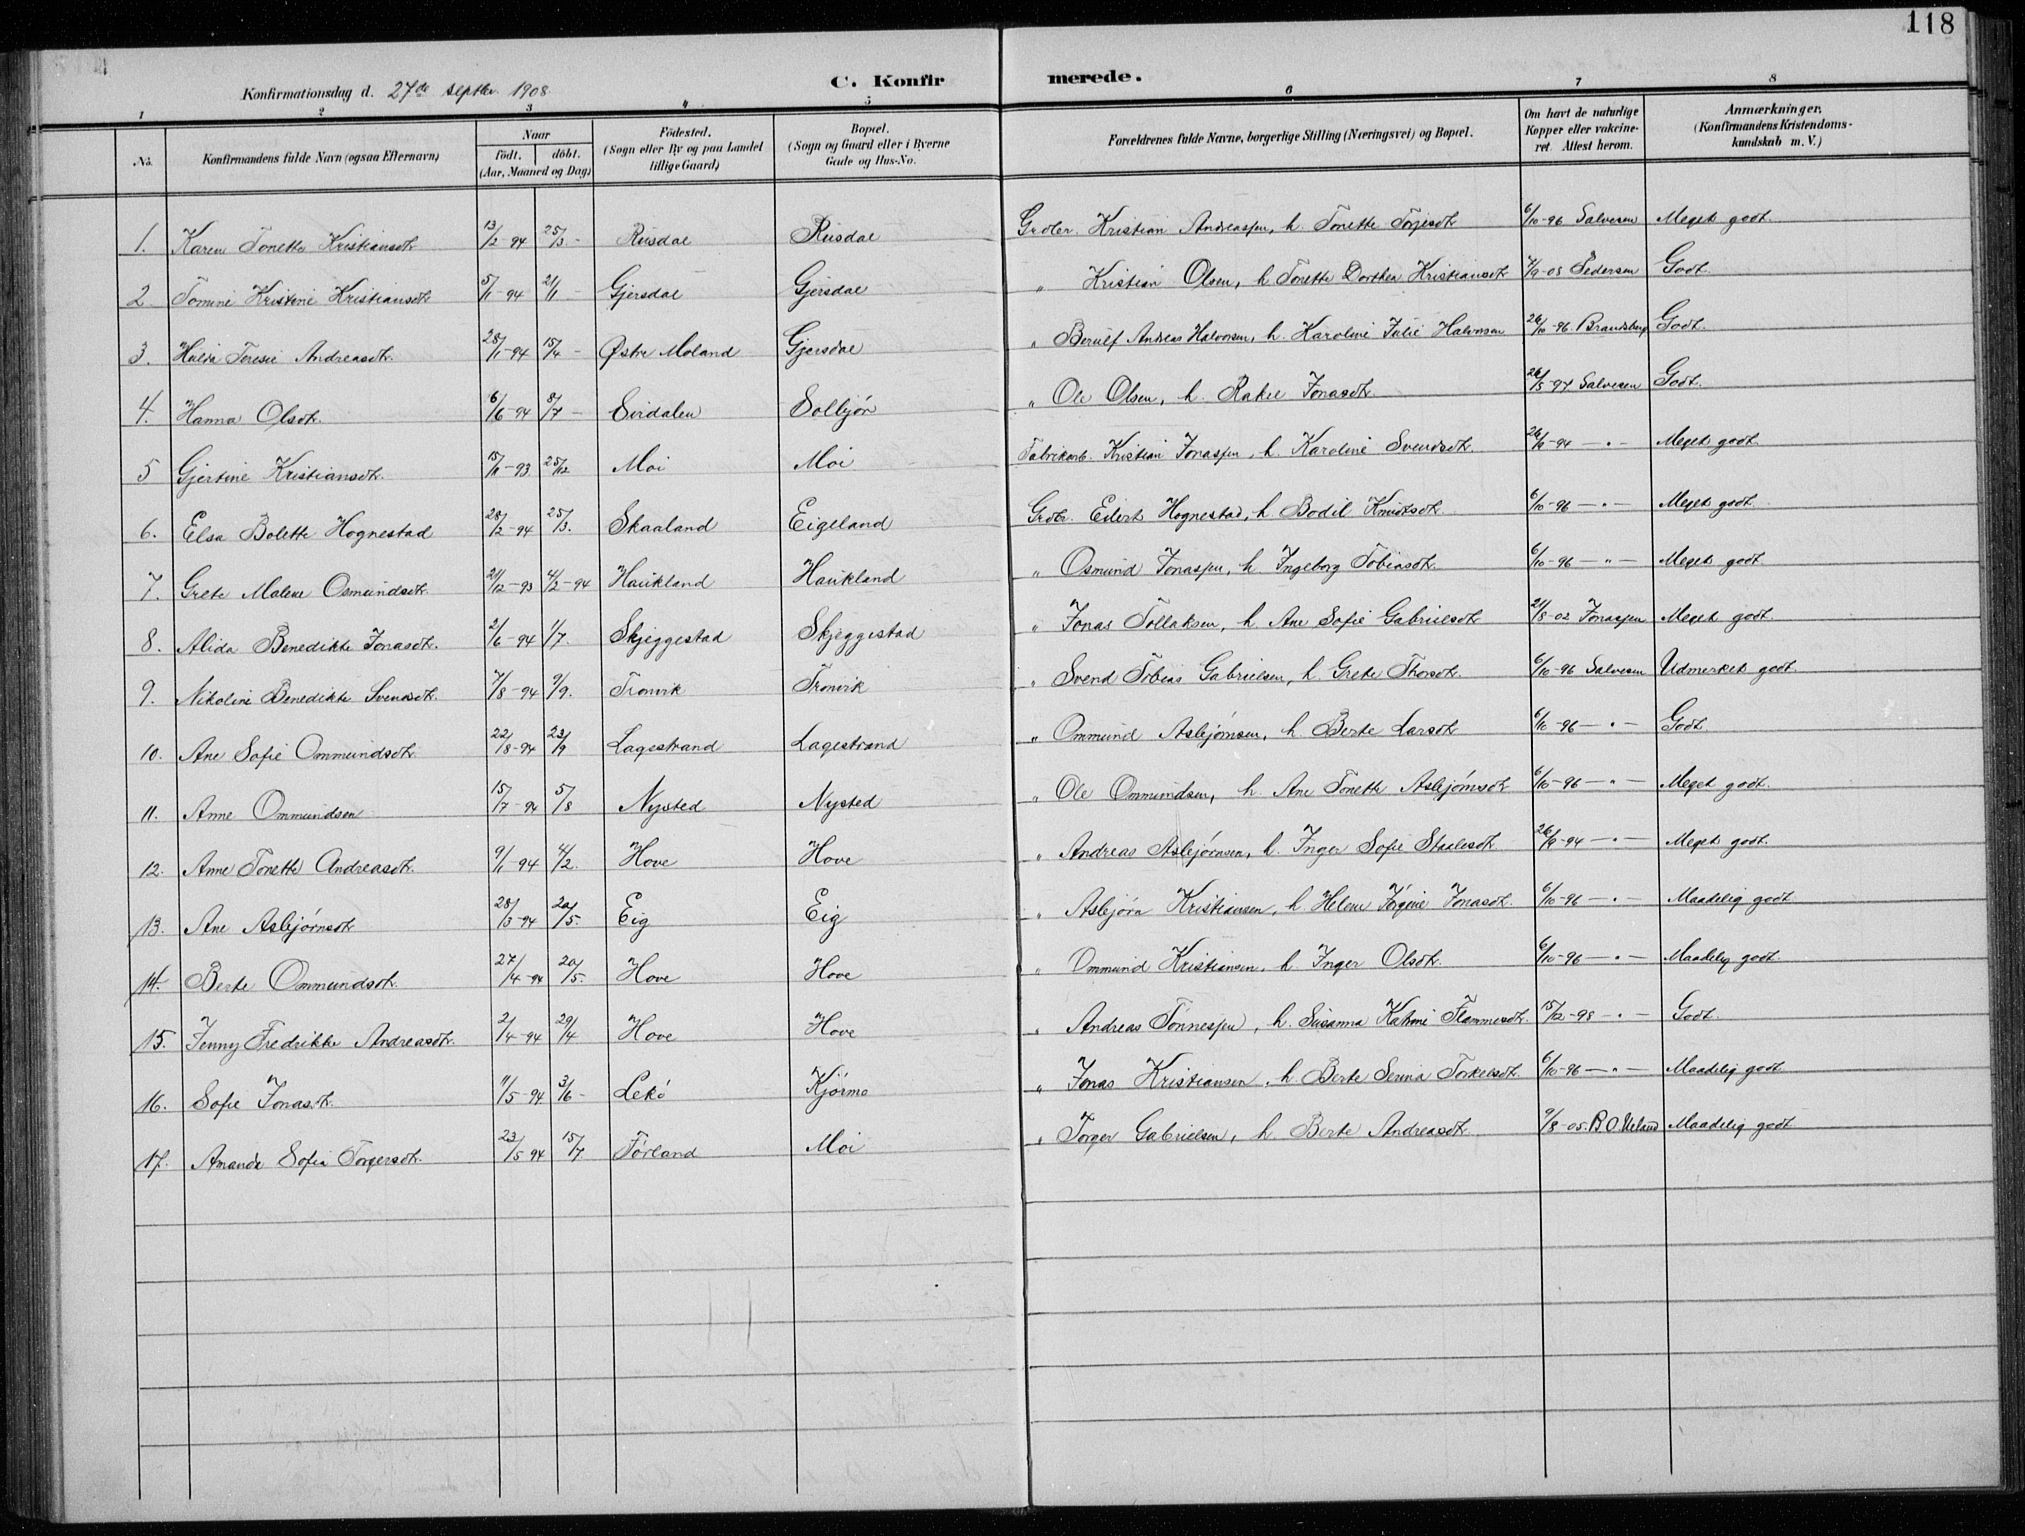 118
Konfirmationsdag d. 27de septbr. 1908 C. Konfirmerede.
1 2 3 4 5 6 7 8
No. Konfirmandens fulde Navn (ogsaa Efternavn) Naar födt. döbt. (Aar, Maaned og Dag) Födested. (Sogn eller By og paa Landet tillige Gaard) Bopæl. (Sogn og Gaard eller i Byerne Gade og Hus-No. Forældrenes fulde Navne, borgerlige Stilling (Næringsvei) og Bopæl. Om havt de naturlige Kopper eller vakcineret. Attest herom. Anmærkninger. (Konfirmandens Kristendomskundskab m. V.)
1. Karen Tonette Kristiansdt. 13/2-94 25/3- Rusdal Rusdal Grdbr. Kristian Andreassen, h. Tonette Torjesdt. 6/10-96 Salvesen Meget godt.
2 Tomine Kristine Kristiansdt. 5/1-94 21/1- Gjersdal Gjersdal " Kristian Olsen, h. Tonette Dorthea Kristiansdt. 7/9-08 Pedersen Godt.
3. Hulda Teresie Andreasdt. 28/1-94 15/4- Østre Moland Gjersdal " Berulf Andreas Halvorsen, h. Karoline Julie Halvorsen 26/10-96 Brandsberg Godt.
4. Hanna Olsdt. 6/6-94 8/7- Sirdalen Solbjør " Ole Olsen, h. Rakel Jonasdt. 26/5-97 Salvesen Godt.
5 Gjertine Kristiansdt. 15/11-93 25/12 Moi Moi Fabrikarb. Kristian Jonassen, h. Karoline Svendsdt. 26/9-94 -"- Meget godt.
6. Elsa Bolette Hognestad 28/2-94 25/3. Skaaland Eigeland Grdbr. Eilert Hognestad, h. Bodil Knudsdt. 6/10-96 -"- Meget godt.
7. Grete Malene Osmundsdt. 21/12-93 4/2-94 Haukland Haukland " Osmund Jonassen, h. Ingeborg Tobiasdt. 6/10-96 -"- Meget godt.
8. Alida Benedikte Jonasdt. 2/6-94 1/7. Skjeggestad Skjeggestad " Jonas Tollaksen, h. Ane Sofie Gabrielsdt. 21/8-02 Jonassen Meget godt.
9. Nikoline Benedikte Svendsdt. 7/8-94 9/9. Tronvik Tronvik " Svend Tobias Gabrielsen, h. Grete Thorsdt. 6/10-96 Salvesen Udmerket godt.
10. Ane Sofie Ommundsdt. 22/8-94 23/9 Lagestrand Lagestrand " Ommund Asbjørnsen, h. Berte Larsdt. 6/10-96 -"- Godt.
11. Anne Ommundsen 15/7-94 5/8 Nysted Nysted " Ole Ommundsen, h. Ane Tonette Asbjørnsdt. 6/10-96 -"- Meget godt.
12. Anne Tonette Andreasdt. 9/1-94 4/2. Hove Hove " Andreas Asbjørnsen, h. Inger Sofie Staalesdt. 26/9-94 -"- Meget godt.
13. Ane Asbjørnsdt. 28/3-94 20/5. Eig Eig " Asbjørn Kristiansen, h. Helene Jørgine Jonasdt. 6/10-96 -"- Maadelig godt
14. Berte Ommundsdt. 27/4-94 20/5. Hove Hove " Ommund Kristiansen, h. Inger Olsdt. 6/10-96 -"- Maadelig godt.
15. Jenny Fredrikke Andreasdt. 2/4-94 29/4 Hove Hove " Andreas Tønnessen, h. Susanna Katrine Flammesdt. 15/2-98 -"- Godt
16. Sofie Jonasdt. 11/5-94 3/6- Lekø Kjørmo " Jonas Kristiansen, h. Berte Serina Torkelsdt. 6/10-96 -"- Maadelig godt
17. Amanda Sofia Torgersdt. 23/5-94 15/7 Førland Moi " Torger Gabrielsen, h. Berte Andreasdt. 9/8-05. B. O. Ueland Maadelig godt